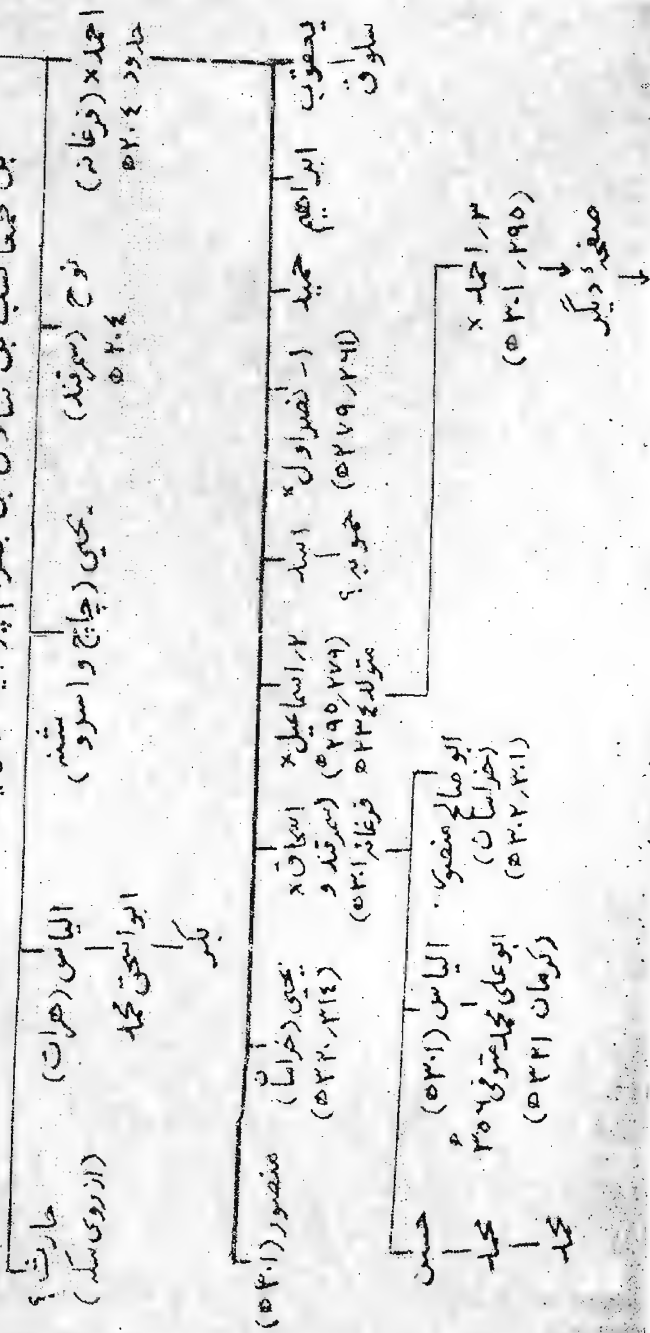 احمد × (فرغانه)
حدود ۲۰۴ ه
نوح (سمرقند)
۲۰۴ ه
یحیی (چاچ و اسرو
شنه)
الیاس (هرات)
ابواسحق محمد
بکر
حارث؟
(از روی سکه)
یعقوب
ابراهیم
حمید
۱- نصر اول ×
(۲۶۱ر۲۷۹ ه)
اسد
حمویه؟
۲ر اسماعیل ×
(۲۷۹ر۲۹۵ ه)
متولد ۲۳۴ ه
اسحاق ×
(سمرقند و
فرغانه ۳۰۱ ه)
یحیی (خراسان)
(۳۱۴ر۳۲۰ ه)
منصور (۳۰۱ ه)
۳ر احمد ×
(۲۹۵ر۳۰۱ ه)
صفحهٔ دیگر
ابو صالح منصور
(خراسان)
(۳۰۱ر۳۰۲ ه)
الیاس (۳۰۱ ه)
ابو علی محمد متوفی ۳۵۶ ه
(کرمان ۳۲۱ ه)
حسین
محمد
محمد